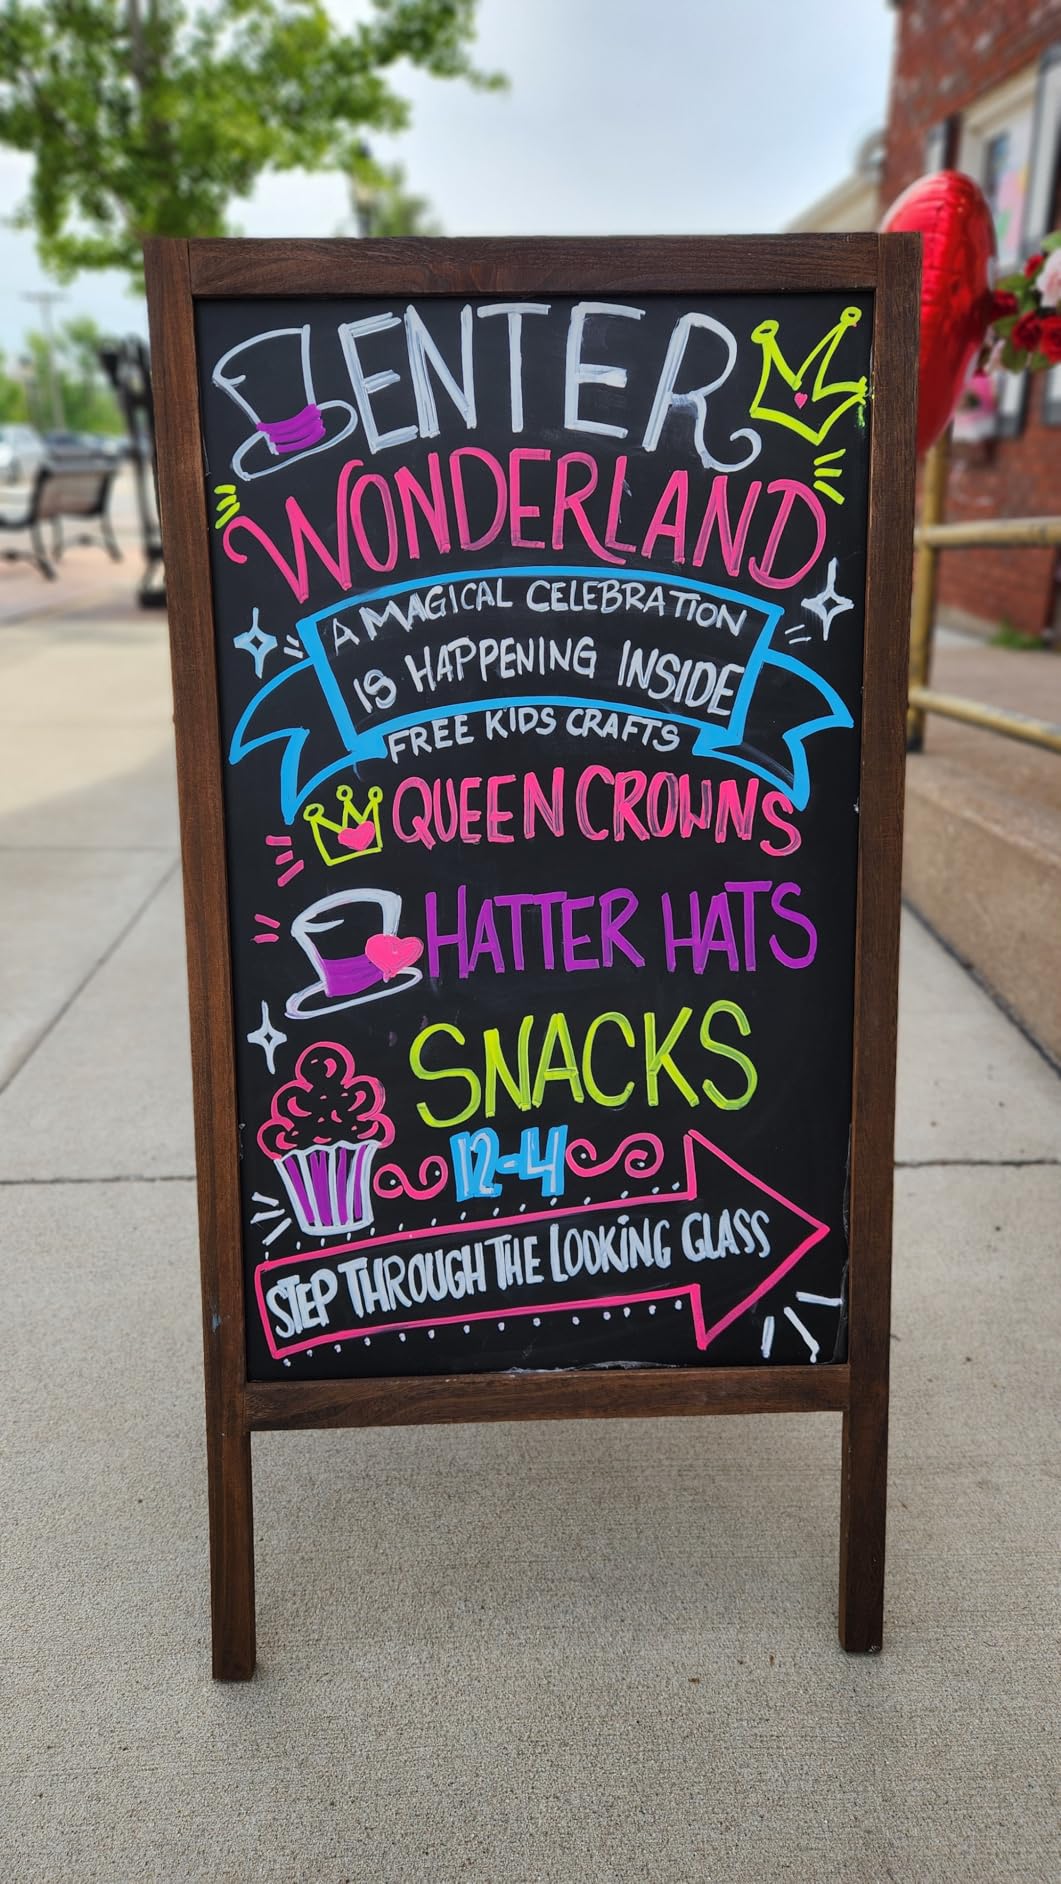 ENTER
WONDERLAND
A MAGICAL CELEBRATION
IS HAPPENING INSIDE
FREE KIDS CRAFTS
QUEEN CROWNS
HATTER HATS
SNACKS
12-4
STEP THROUGH THE LOOKING GLASS